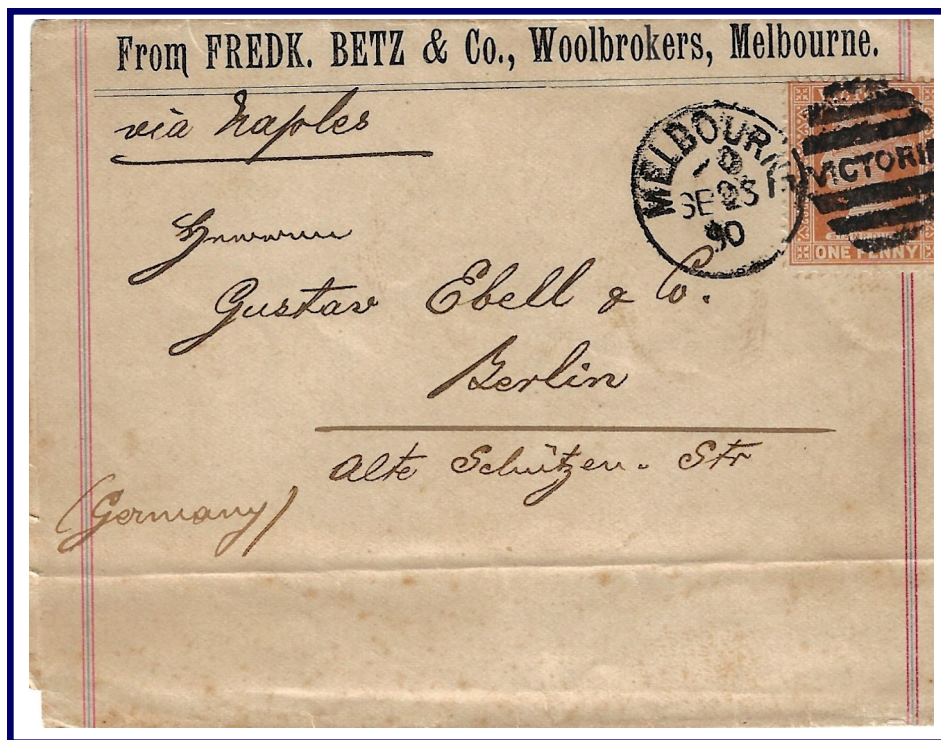 From FREDK. BETZ & Co., Woolbrokers, Melbourne.
via Naples
MELBOURNE
SE 23
90
VICTORI
ONE PENNY
Gustav Ebell & Co.
Berlin
Alte Schützen. Str
(Germany)